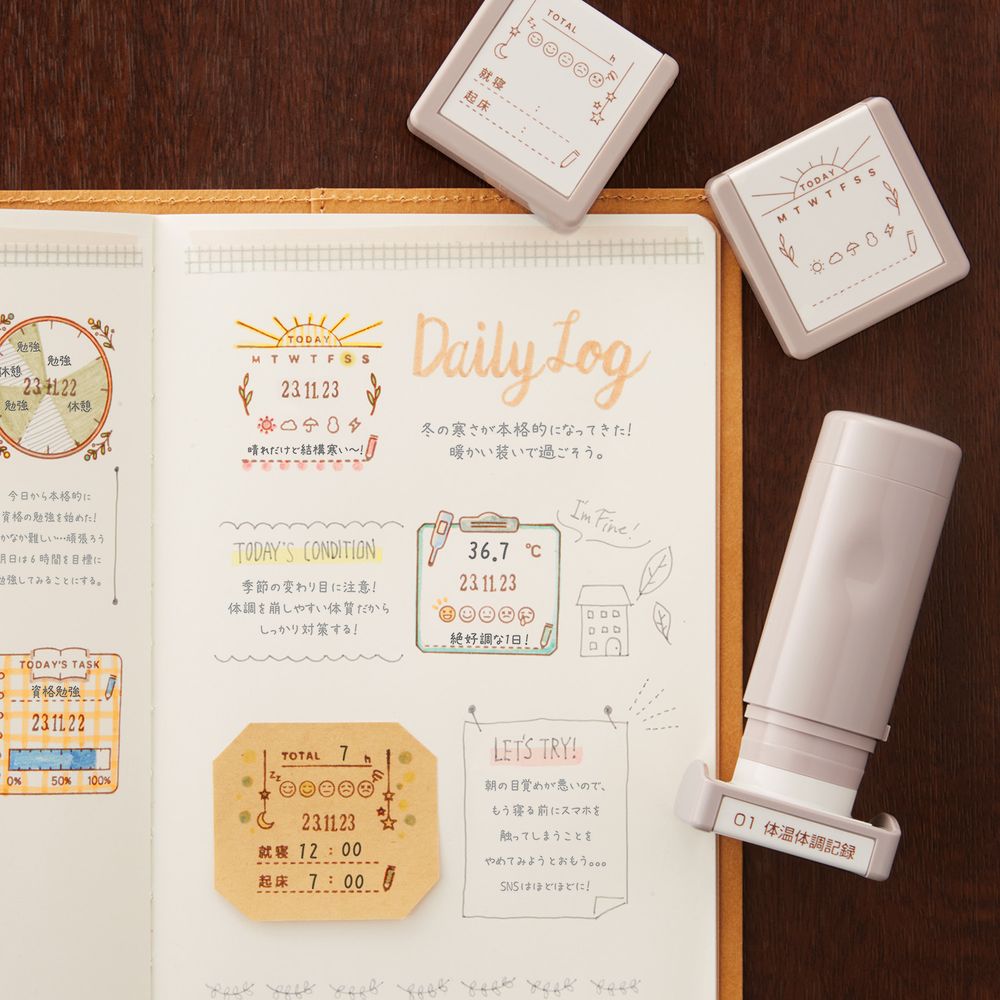 TOTAL
zz
h
就寝 :
起床 :
TODAY
M T W T F S S
勉強
勉強
休憩
23.11.22
勉強
休憩
今日から本格的に
資格の勉強を始めた!
かなか難しい…頑張ろう
明日は6時間を目標に
勉強してみることにする。
TODAY'S TASK
資格勉強
23.11.22
0% 50% 100%
TODAY
M T W T F S S
23.11.23
晴れだけど結構寒い〜!
Daily Log
冬の寒さが本格的になってきた!
暖かい装いで過ごそう。
TODAY'S CONDITION
季節の変わり目に注意!
体調を崩しやすい体質だから
しっかり対策する!
36.7 ℃
23.11.23
絶好調な1日!
I'm Fine!
TOTAL 7 h
zz
23.11.23
就寝 12 : 00
起床 7 : 00
LET'S TRY!
朝の目覚めが悪いので、
もう寝る前にスマホを
触ってしまうことを
やめてみようとおもう。。。
SNSはほどほどに!
01 体温体調記録